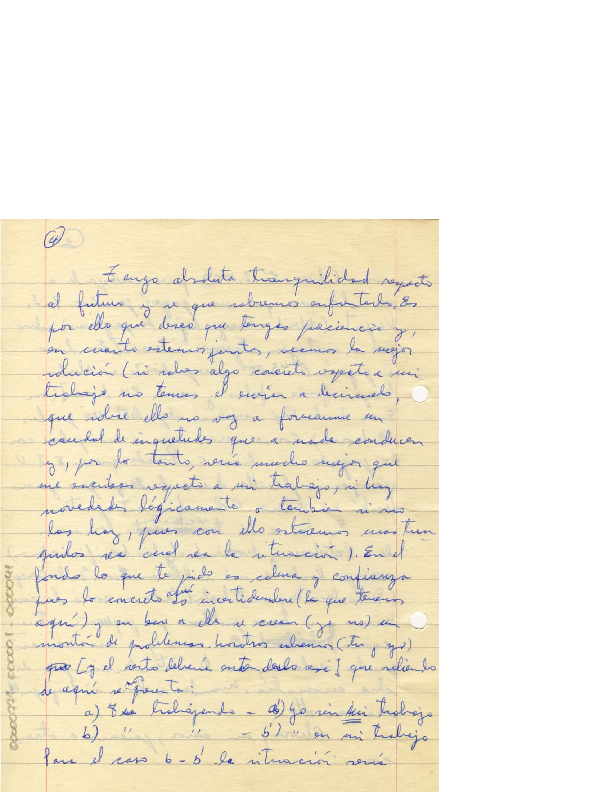 4
Tengo absoluta tranquilidad respecto
al futuro y se que sabremos enfrentarlo. Es
por ello que deseo que tengas paciencia y,
en cuanto estemos juntos, veamos la mejor
solución (si sabes algo concreto respecto a mi
trabajo no temas el enviar a decirmelo,
que sobre ello no voy a formarme un
caudal de inquetudes que a nada conducen
y, por lo tanto, sería mucho mejor que
me escribas respecto a mi trabajo, si hay
novedades lógicamente o tambien si no
las hay, pues con ello estaremos mas tran
quilos sea cual sea la situación). En el
fondo lo que te pido es calma y confianza
pues lo concreto aquí es incertidumbre (la que tenemos
aquí) y en base a ella se crean (yo no) un
montón de problemas. Nosotros sabemos (tu y yo)
[y el resto debería entenderlo así] que saliendo
de aquí se nos presenta:
a) Tu trabajando - a') Yo sin mi trabajo
b) " " - b') " con mi trabajo
Para el caso b - b' la situación sería
0000771-000001-000041